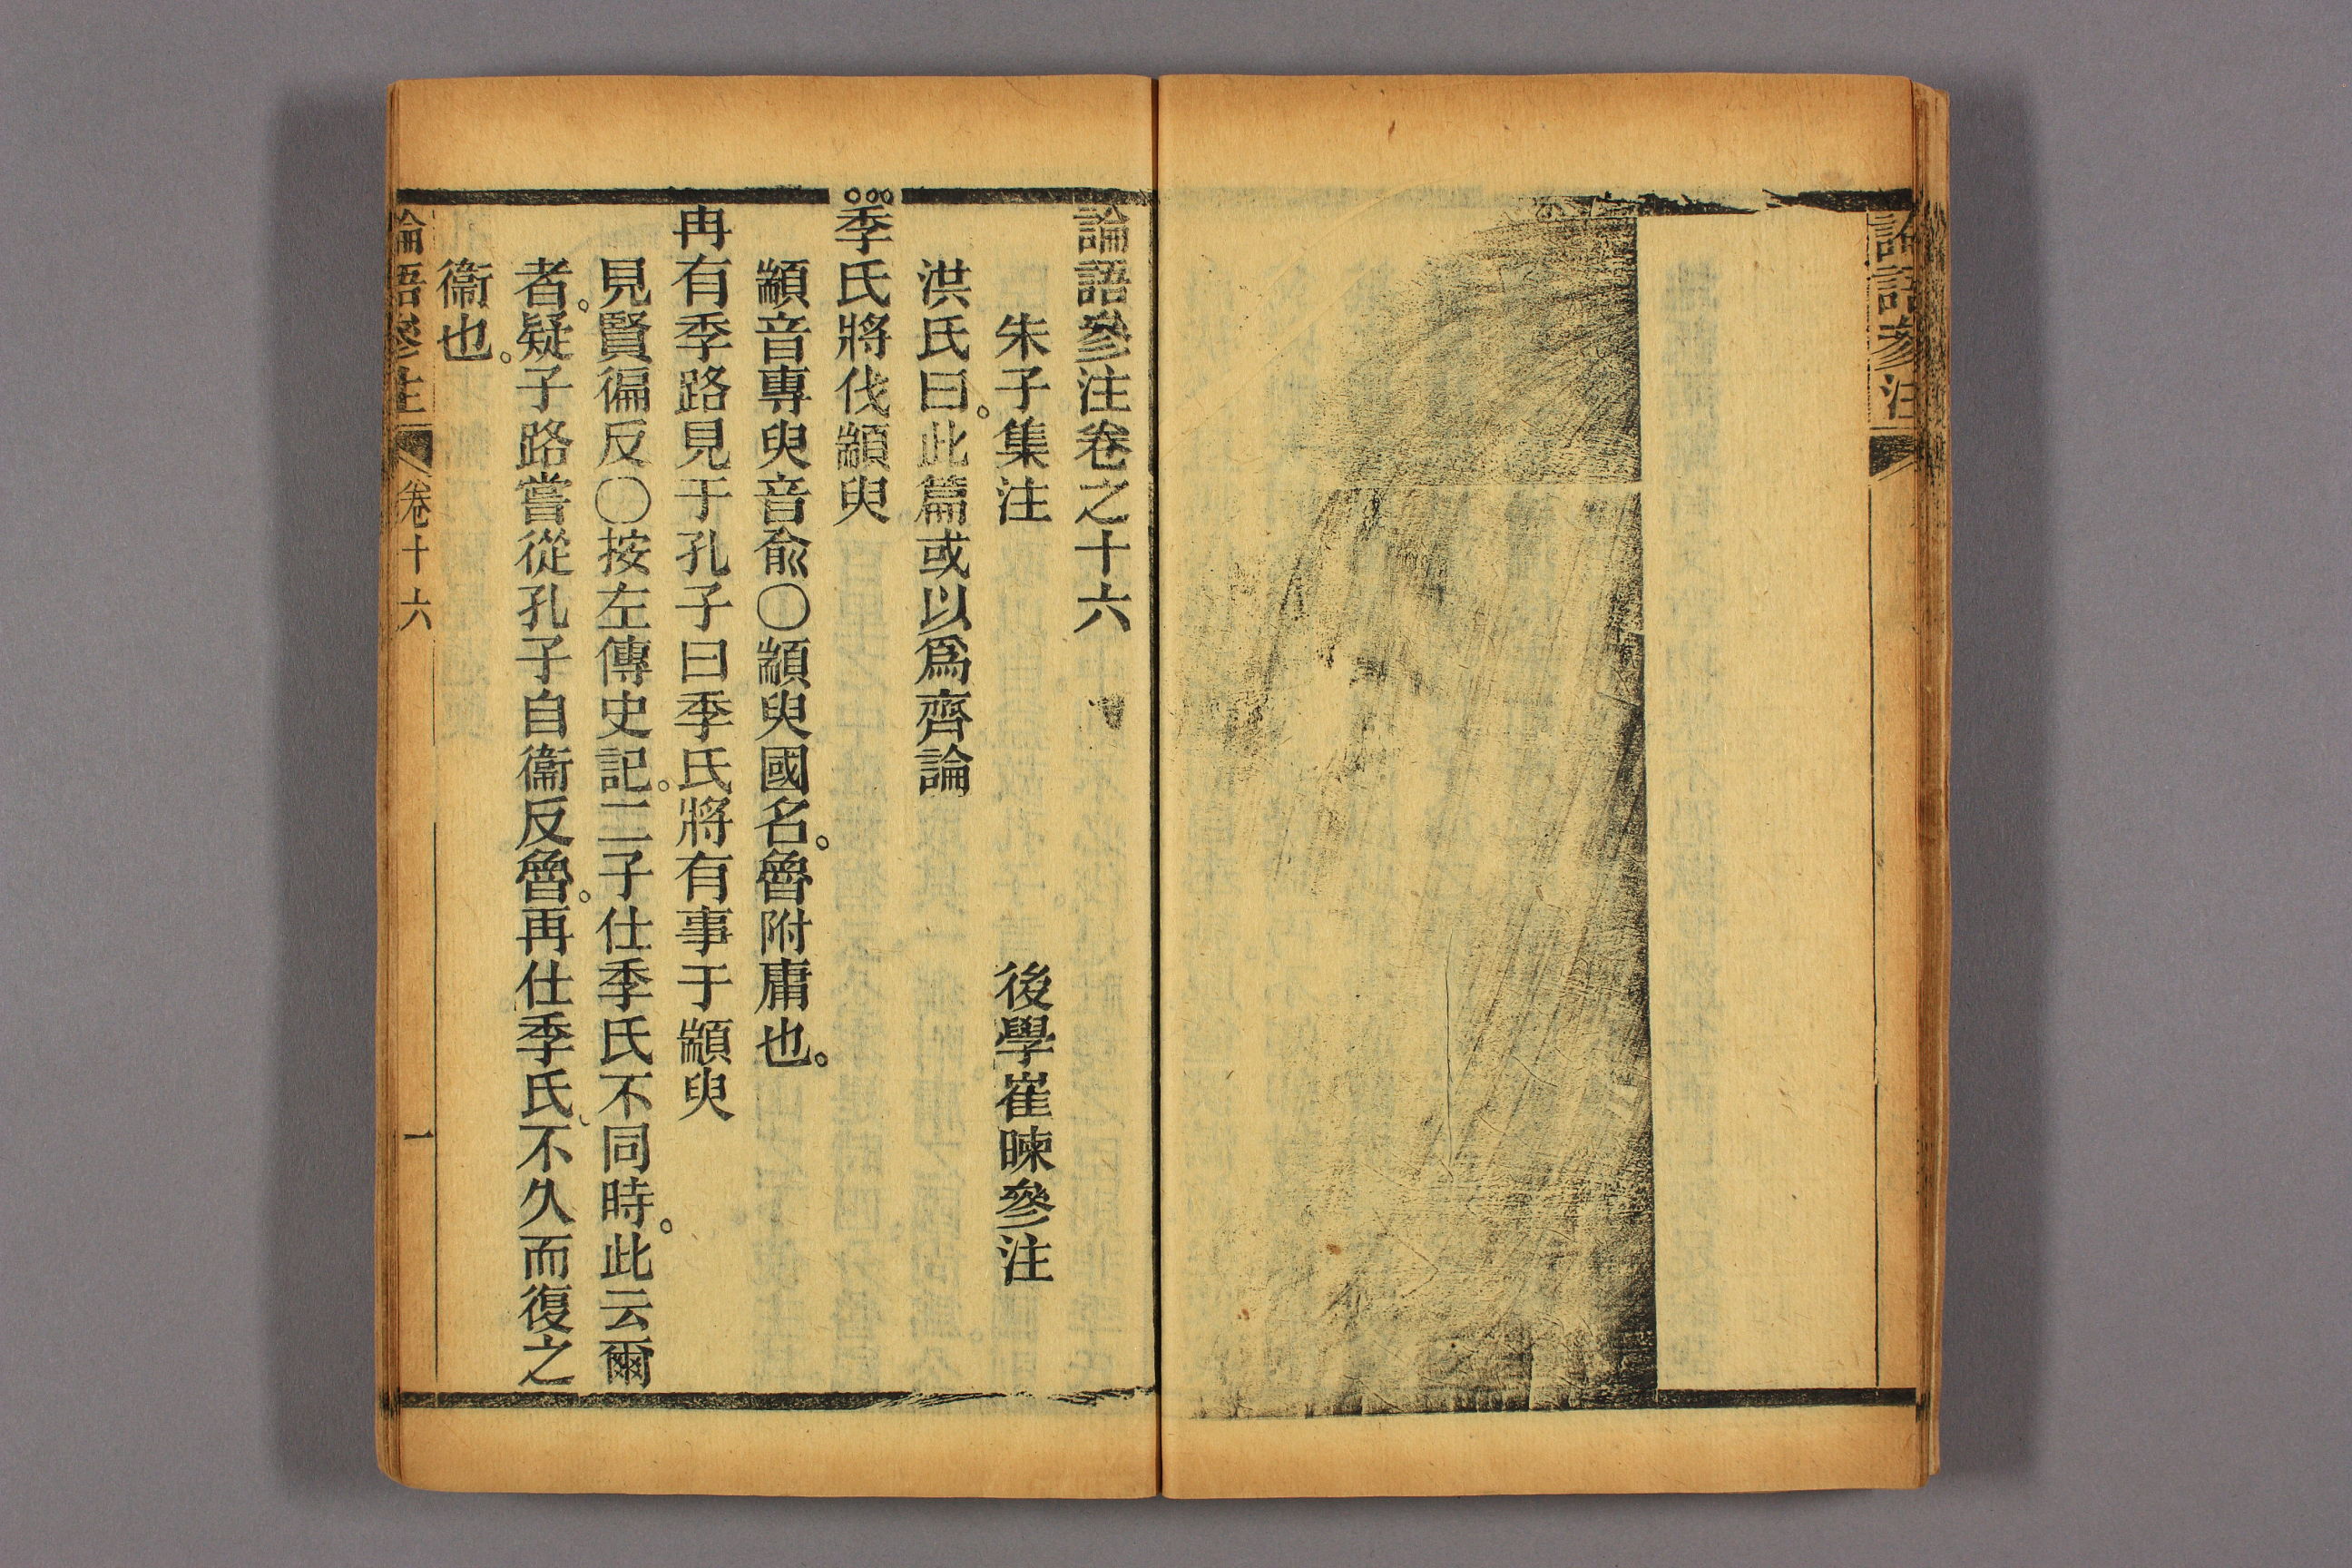 論語參注
論語參注卷之十六
朱子集注　後學崔暕參注
洪氏曰。此篇或以爲齊論
季氏將伐顓臾
顓音專臾音兪〇顓臾國名。魯附庸也。
冉有季路見于孔子曰季氏將有事于顓臾
見賢徧反〇按左傳史記。二子仕季氏不同時。此云爾
者。疑子路嘗從孔子自衞反魯。再仕季氏、不久而復之
衞也。
論語參注　卷十六　一